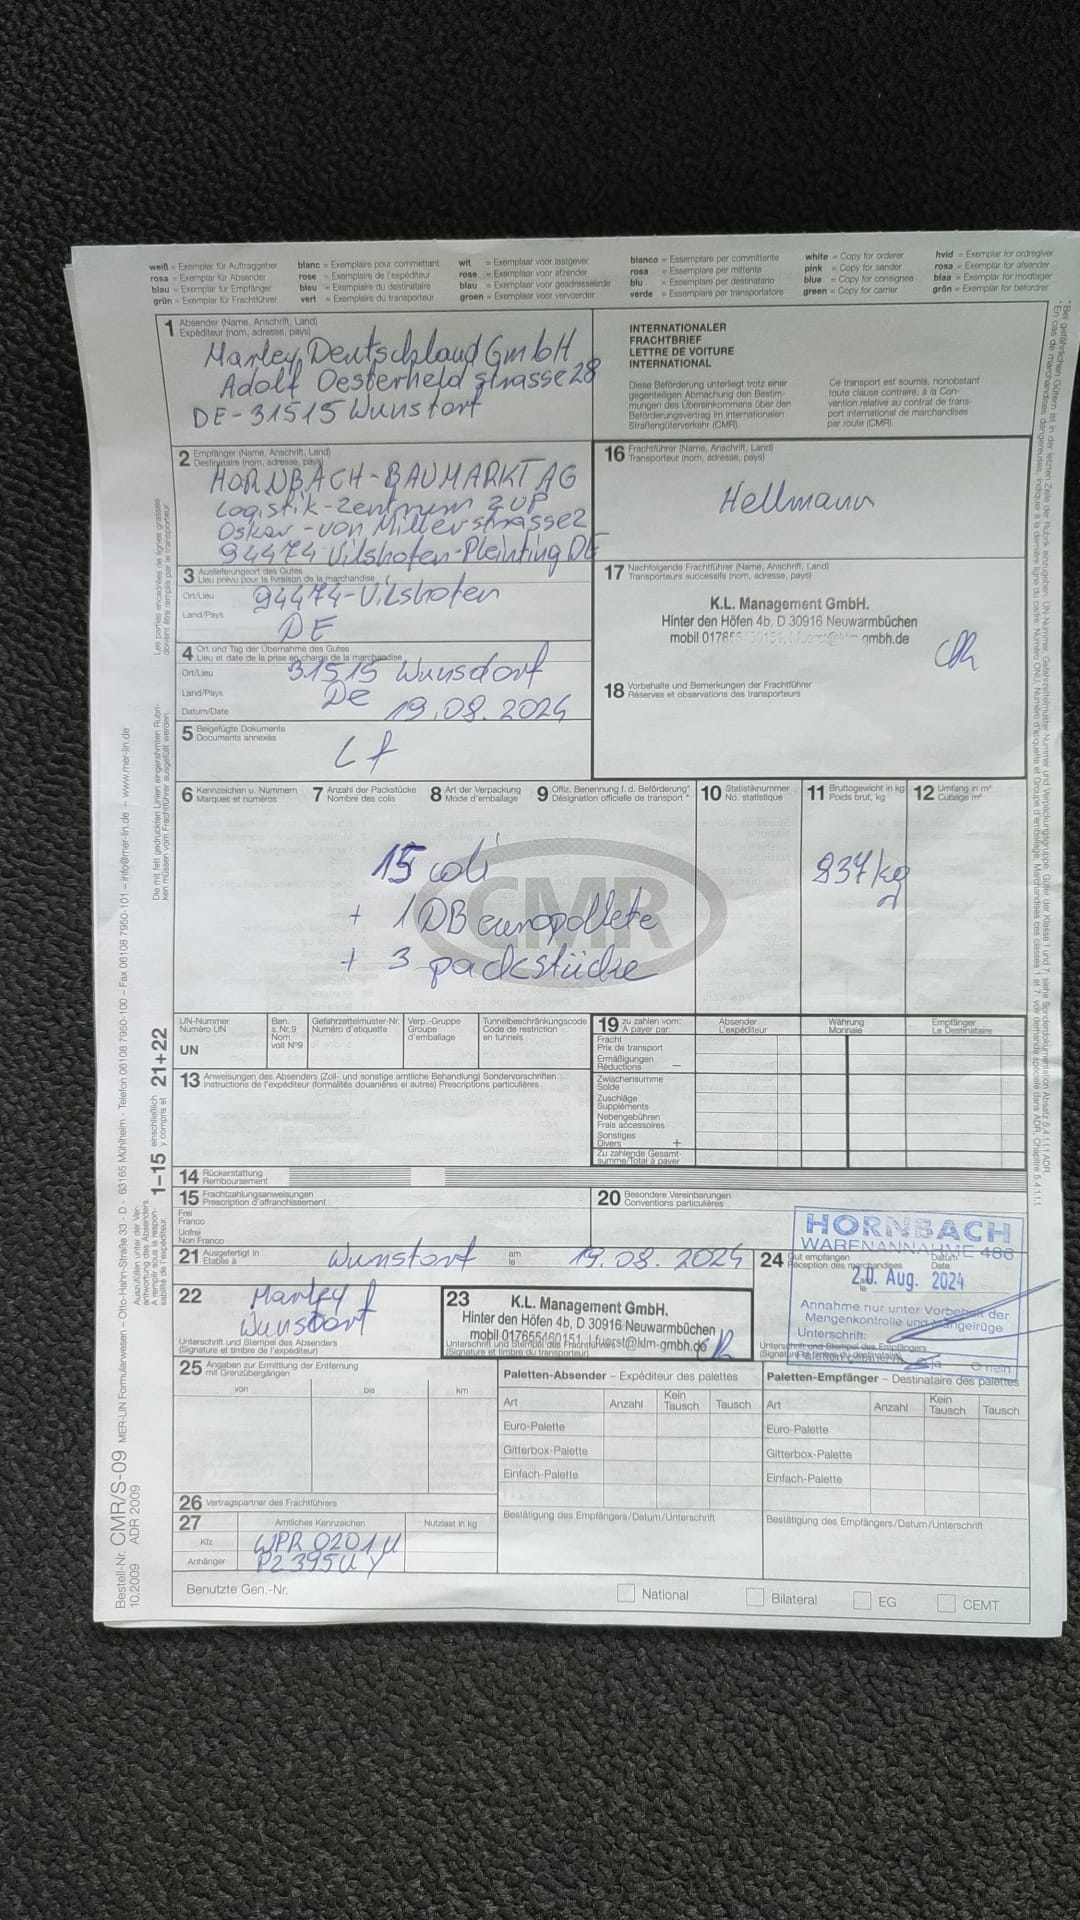 weiß = Exemplar für Auftraggeber
rosa = Exemplar für Absender
blau = Exemplar für Empfänger
grün = Exemplar für Frachtführer
blanc = Exemplaire pour commettant
rose = Exemplaire de l'expéditeur
bleu = Exemplaire du destinataire
vert = Exemplaire du transporteur
wit = Exemplaar voor lastgever
rose = Exemplaar voor afzender
blau = Exemplaar voor geadresseerde
groen = Exemplaar voor vervoerder
blanco = Essemplare per committente
rosa = Essemplare per mittente
blu = Essemplare per destinatario
verde = Essemplare per transportatore
white = Copy for orderer
pink = Copy for sender
blue = Copy for consignee
green = Copy for carrier
hvid = Exemplar for ordregiver
rosa = Exemplar for afsender
blaa = Exemplar for modtager
grön = Exemplar for befordrer
1 Absender (Name, Anschrift, Land)
Expéditeur (nom, adresse, pays)
Marley Deutschland GmbH
Adolf Oesterheld strasse 28
DE-31515 Wunstorf
INTERNATIONALER
FRACHTBRIEF
LETTRE DE VOITURE
INTERNATIONAL
Diese Beförderung unterliegt trotz einer
gegenteiligen Abmachung den Bestim-
mungen des Übereinkommens über den
Beförderungsvertrag im internationalen
Straßengüterverkehr (CMR).
Ce transport est soumis, nonobstant
toute clause contraire, à la Con-
vention relative au contrat de trans-
port international de marchandises
par route (CMR).
2 Empfänger (Name, Anschrift, Land)
Destinataire (nom, adresse, pays)
HORNBACH-BAUMARKT AG
Logistik-Zentrum ZUP
Oskar-von Miller strasse2
94474 Vilshofen-Pleinting DE
16 Frachtführer (Name, Anschrift, Land)
Transporteur (nom, adresse, pays)
Hellmann
3 Auslieferungsort des Gutes
Lieu prévu pour la livraison de la marchandise
Ort/Lieu 94474-Vilshofen
Land/Pays DE
17 Nachfolgende Frachtführer (Name, Anschrift, Land)
Transporteurs successifs (nom, adresse, pays)
K.L. Management GmbH.
Hinter den Höfen 4b, D 30916 Neuwarmbüchen
4 Ort und Tag der Übernahme des Gutes
Lieu et date de la prise en charge de la marchandise
Ort/Lieu 31515 Wunsdorf
Land/Pays De
Datum/Date 19.08.2024
18 Vorbehalte und Bemerkungen der Frachtführer
Réserves et observations des transporteurs
5 Beigefügte Dokumente
Documents annexés
6 Kennzeichen u. Nummern
Marques et numéros
7 Anzahl der Packstücke
Nombre des colis
8 Art der Verpackung
Mode d'emballage
9 Offiz. Benennung f. d. Beförderung*
Désignation officielle de transport*
10 Statistiknummer
No. statistique
11 Bruttogewicht in kg
Poids brut, kg
12 Umfang in m³
Cubage m³
CMR
15 coli
+ 1 DB europallete
+ 3 packstücke
837kg
UN-Nummer
Numéro UN
UN
Ben.
s. Nr. 9
Nom
voit N°9
Gefahrzettelmuster-Nr.
Numéro d'etiquette
Verp.-Gruppe
Groupe
d'emballage
Tunnelbeschränkungscode
Code de restriction
en tunnels
19 zu zahlen vom:
A payer par:
Absender
L'expéditeur
Währung
Monnaie
Empfänger
Le Destinataire
Fracht
Prix de transport
Ermäßigungen
Réductions —
Zwischensumme
Solde
Zuschläge
Suppléments
Nebengebühren
Frais accessoires
Sonstiges
Divers +
Zu zahlende Gesamt-
summe/Total à payer
13 Anweisungen des Absenders (Zoll- und sonstige amtliche Behandlung) Sondervorschriften
Instructions de l'expéditeur (formalités douanières et autres) Prescriptions particulières
14 Rückerstattung
Remboursement
15 Frachtzahlungsanweisungen
Prescription d'affranchissement
Frei
Franco
Unfrei
Non Franco
20 Besondere Vereinbarungen
Conventions particulières
21 Ausgefertigt in
Etablie à
Wunstorf
am
le
19.08.2024
24 Gut empfangen
Réception des marchandises
Datum
Date
HORNBACH
WARENANNAHME 466
20. Aug. 2024
Annahme nur unter Vorbehalt der
Mengenkontrolle und Mängelrüge
Unterschrift:
22 Marley
Wunstorf
Unterschrift und Stempel des Absenders
(Signature et timbre de l'expéditeur)
23 K.L. Management GmbH.
Hinter den Höfen 4b, D 30916 Neuwarmbüchen
mobil 017655460151, l.fuerst@klm-gmbh.de
Unterschrift und Stempel des Frachtführers
(Signature et timbre du transporteur)
Unterschrift und Stempel des Empfängers
(Signature et timbre du destinataire)
ja O nein
25 Angaben zur Ermittlung der Entfernung
mit Grenzübergängen
von bis km
Paletten-Absender – Expéditeur des palettes
Art Anzahl Kein Tausch Tausch
Euro-Palette
Gitterbox-Palette
Einfach-Palette
Bestätigung des Empfängers/Datum/Unterschrift
Paletten-Empfänger – Destinataire des palettes
Art Anzahl Kein Tausch Tausch
Euro-Palette
Gitterbox-Palette
Einfach-Palette
Bestätigung des Empfängers/Datum/Unterschrift
26 Vertragspartner des Frachtführers
27 Amtliches Kennzeichen Nutzlast in kg
Kfz WPR 0201U
Anhänger P2 395UY
Benutzte Gen.-Nr.
National
Bilateral
EG
CEMT
Bestell-Nr. CMR/S-09 MER-LIN Formularwesen – Otto-Hahn-Straße 33 – D - 63165 Mühlheim - Telefon 06108 7950-100 – Fax 06108 7950-101 – info@mer-lin.de – www.mer-lin.de
10.2009 ADR 2009
Auszufüllen unter der Ver-
antwortung des Absenders
1–15 einschließlich
y compris et 21+22
Die mit fett gedruckten Linien eingerahmten Rubri-
ken müssen vom Frachtführer ausgefüllt werden.
Les parties encadrées de lignes grasses
doivent être remplis par le transporteur.